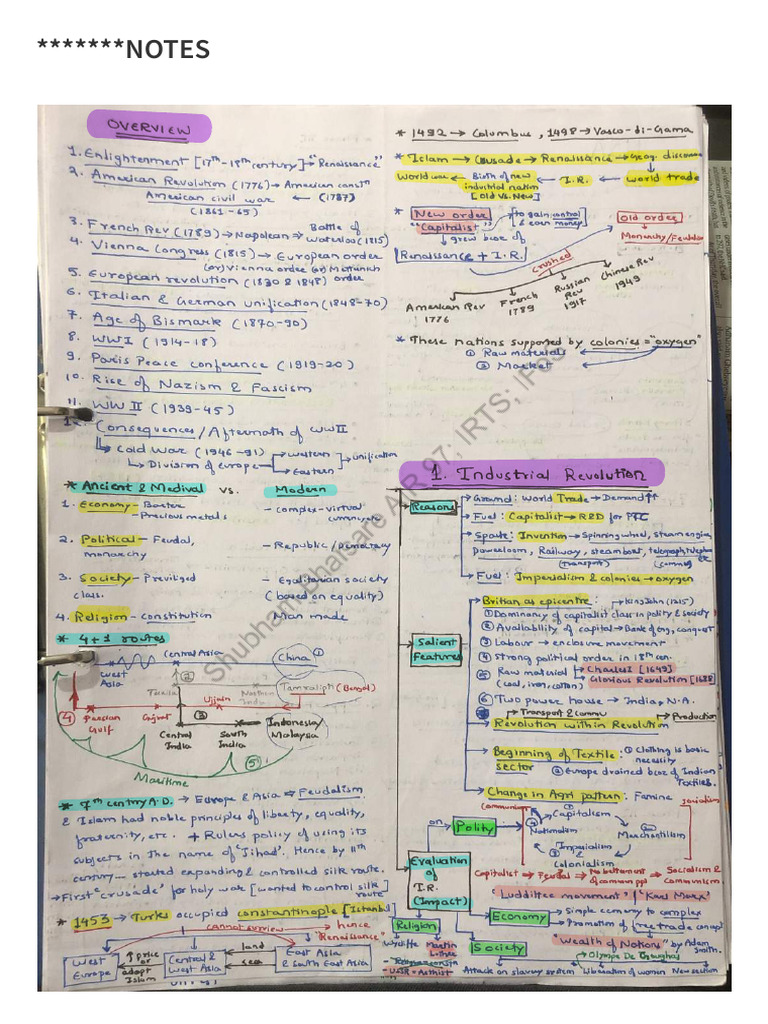 *******NOTES
OVERVIEW
1. Enlightenment [17th-18th century] → "Renaissance"
2. American Revolution (1776) → American constn
American civil war ← (1787)
(1861-65)
3. French Rev (1789) → Napolean → Battle of
Waterloo (1815)
4. Vienna Congress (1815) → European order
(or) Vienna order (or) Metturnich
order
5. European revolution (1830 & 1848)
6. Italian & German unification (1848-70)
7. Age of Bismark (1870-90)
8. WWI (1914-18)
9. Paris Peace conference (1919-20)
10. Rise of Nazism & Fascism
11. WW II (1939-45)
12. Consequences / Aftermath of WWII
→ Cold War (1946-91)
→ Division of europe → western
→ Eastern
unification
* Ancient & Medival vs. Modern
1. Economy - Barter
- Precious metals
- complex-virtual
2. Political - Feudal,
monarchy
- Republic / Democracy
3. Society - Previliged
class.
- Egalitarian society
(based on equality)
4. Religion - constitution
- Man made
* 4+1 routes
Central Asia
China
①
West
Asia
②
Taxila
Ujjain
Northern
India
Tamralipti (Bengal)
④
Persian
Gulf
Gujrat
③
Central
India
South
India
Indonesia/
Malaysia
⑤
Maritime
* 7th century A.D. → Europe & Asia ⇒ Feudalism
& Islam had noble principles of liberty, equality,
fraternity, etc. + Rulers policy of using its
subjects in the name of 'Jihad'. Hence by 11th
century - started expanding & controlled silk route.
→ First 'crusade' for holy war [wanted to control silk
route]
* 1453 → Turks occupied constantinople [Istanbul]
cannot survive
hence
"Renaissance"
West
Europe
↑ price
or
adopt
Islam
Central &
West Asia
land
sea
East Asia
& South East Asia
* 1492 → Columbus, 1498 → Vasco-di-Gama
* Islam → Crusade → Renaissance → Geog. discoveries
World war ← Birth of new
industrial nation
[Old vs. New]
← I.R. ← world trade
* New order
"Capitalist"
to gain control
& earn money
Old order
Monarchy/Feudalism
grew bcoz of
Renaissance + I.R.
crushed
American Rev
1776
French
1789
Russian
Rev
1917
Chinese Rev
1949
* These nations supported by colonies = "oxygen"
① Raw materials
② Market
1. Industrial Revolution
Reasons
Ground: World Trade → Demand ↑↑
Fuel: Capitalist → R&D for
Spark: Invention → Spinning wheel, steam engine,
powerloom, Railway, steam boat, telegraph, telephone
(transport)
Fuel: Imperialism & colonies → oxygen
Salient
Features
Britian as epicentre: → King John (1215)
① Dominancy of capitalist class in polity & society
② Availability of capital → Bank of eng, conquest
③ Labour → enclosure movement
④ Strong political order in 18th cen.
⑤ Raw material
(coal, iron, cotton)
→ Charles I [1649]
→ Glorious Revolution [1688]
⑥ Two power house → India, N.A.
Transport & commu
Production
Revolution within Revolution
Beginning of Textile
sector
: ① Clothing is basic
necessity
② Europe drained bcoz of Indian
Textiles.
Change in Agri pattern: Famine
Evaluation
of
I.R.
(Impact)
on
Polity
Communism
Socialism
Capitalism
Nationalism
Mercantilism
Imperialism
Colonialism
Capitalist → Feudal → No betterment
of common ppl → Socialism &
Communism
"Luddittee movement" | "Karl Marx"
Economy
Simple economy to complex
Promotion of free trade concept
"Wealth of Nations" by Adam
Smith.
Religion
Wycliffe
Martin
Luther
USSR = Atheist
Society
Attack on slavery system
Liberation of women
New section
Shubham Bhaisare AIR 97; IRTS; IFoS